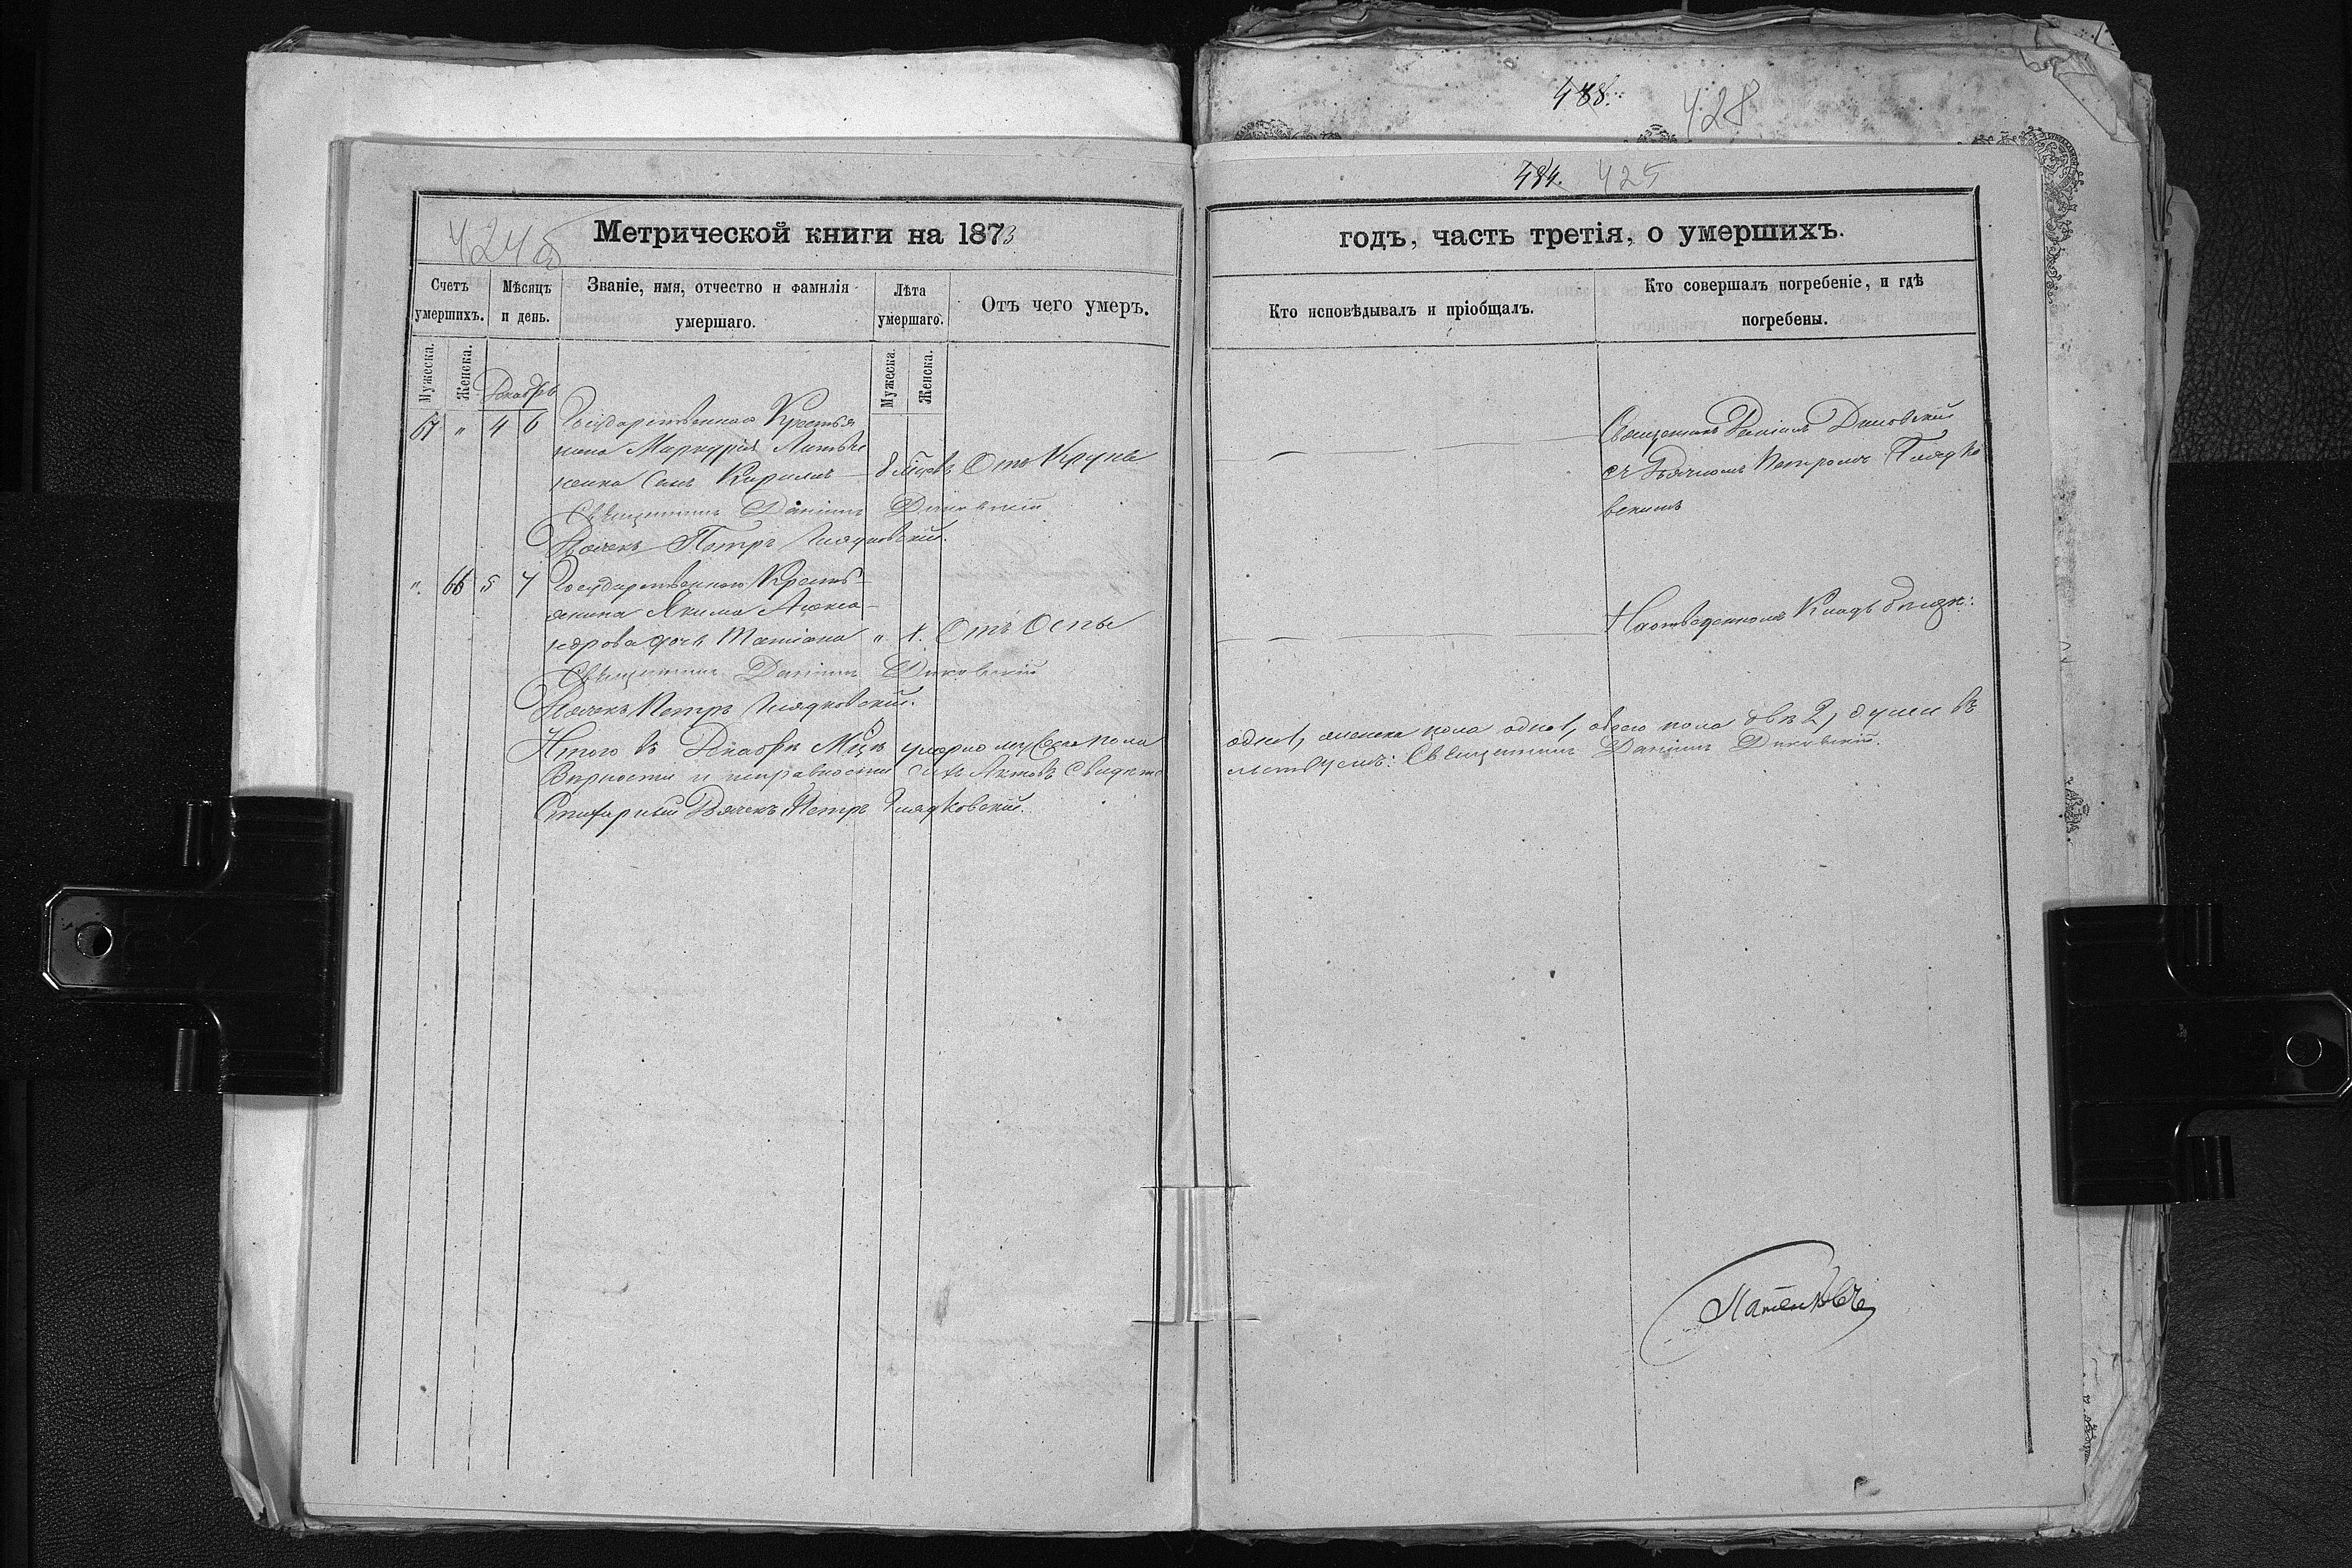 488. 428
484. 425
424об
Метрической книги на 1873
Счетъ умершихъ.
Мѣсяцъ и день.
Званіе, имя, отчество и фамилія умершаго.
Лѣта умершаго.
Отъ чего умеръ.
Мужеска. Женска.
Мужеска. Женска.
Декабрь
67 " 4 6 Государственнаго Крестья
нина Меркурія
сынъ Кирилъ 8 мѣсяц Отъ Крупа
Священникъ Даніилъ Диковскій
Дьячекъ Петръ Гладковскій.
" 66 5 7 Государственнаго Кресть-
янина Якима Алекса-
ндрова дочь Татіана " 1. Отъ Оспы
Священникъ Даніилъ Диковскій
Дьячекъ Петръ Гладковскій.
Итого въ Декабрѣ М͠цѣ умерло мужеска пола
Вѣрности и исправности сихъ Актовъ свидѣте
Стихарный Дьячекъ Петръ Гладковскій.
годъ, часть третія, о умершихъ.
Кто исповѣдывалъ и пріобщалъ.
Кто совершалъ погребеніе, и гдѣ погребены.
Священникъ Даніилъ Диковскій
съ Дьячкомъ Петромъ Гладко
вскимъ
На отведенномъ Кладбищѣ:
одна, женска пола одна, обоего пола двѣ 2, души въ
льствуемъ: Священникъ Даніилъ Диковскій.